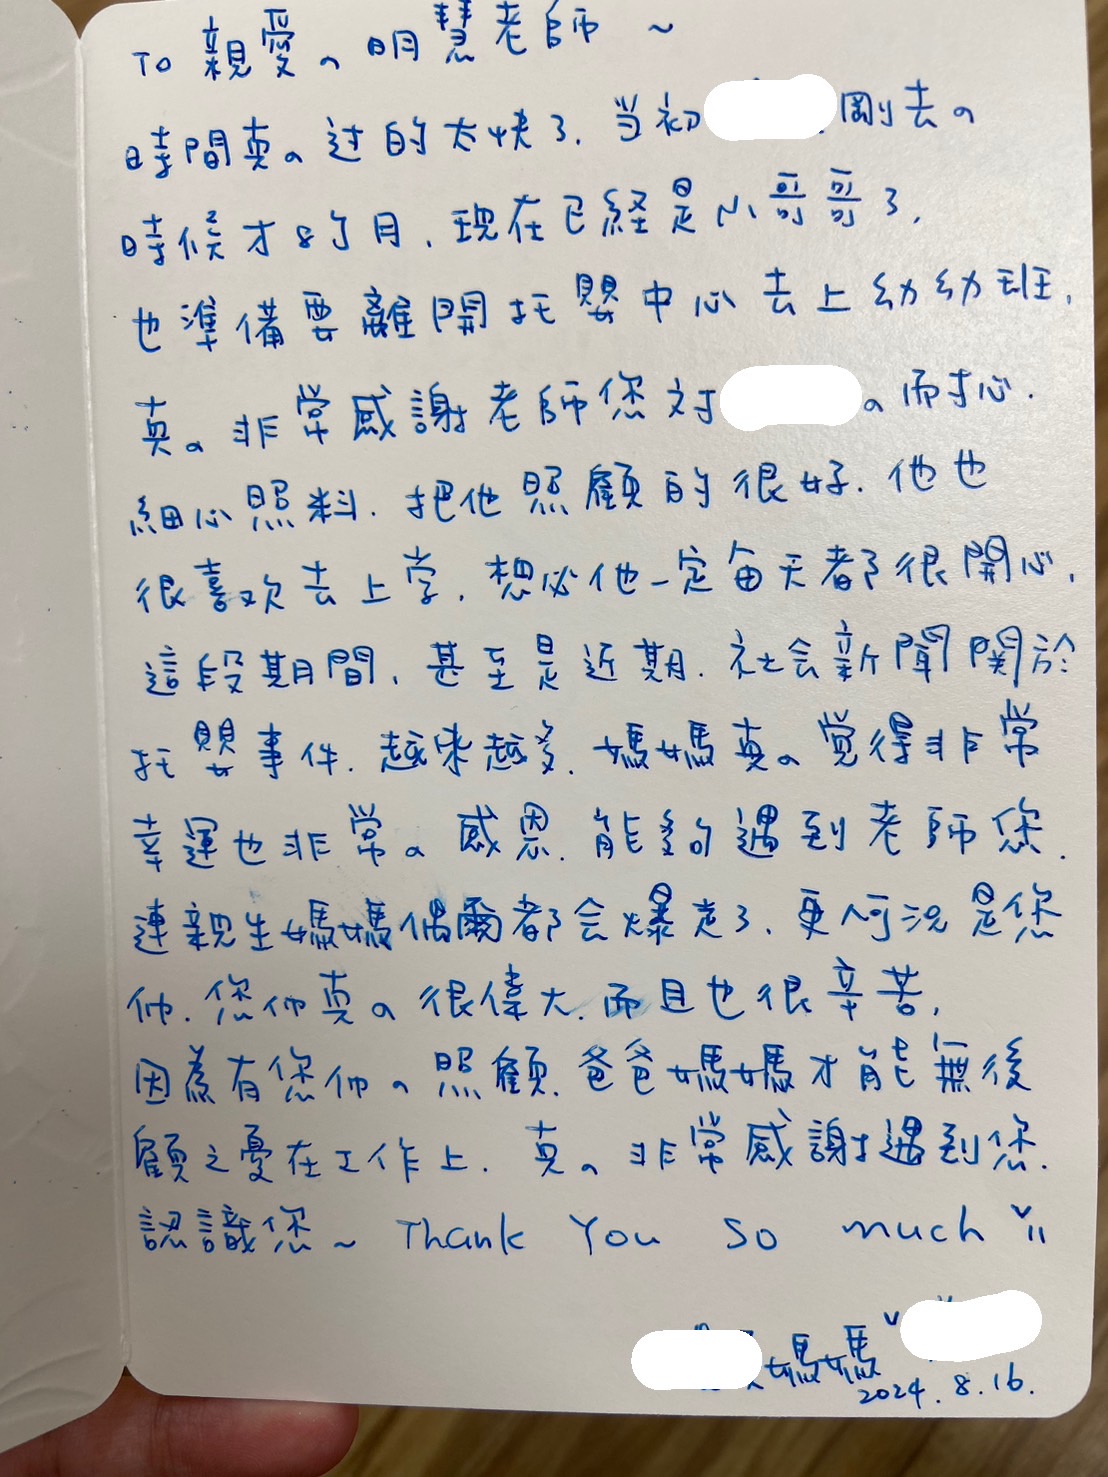 To 親愛の明慧老師 ~
時間真の过的太快了. 当初 剛去の
時候才8个月, 現在已経是小哥哥了,
也準備要離開托嬰中心去上幼幼班,
真の非常感謝老師您对 の而扌心.
細心照料. 把他照顧的很好. 他也
很喜欢去上学, 想必他一定每天都很開心,
這段期間, 甚至是近期. 社会新聞関於
托嬰事件. 越來越多. 媽媽真の覚得非常
幸運也非常の感恩. 能夠遇到老師您.
連親生媽媽偶爾都会爆走了. 更何況是您
们. 您们真の很偉大. 而且也很辛苦,
因為有您们の照顧. 爸爸媽媽才能無後
顧之憂在工作上. 真の非常感謝遇到您.
認識您~ Thank You so much
媽媽
2024. 8. 16.